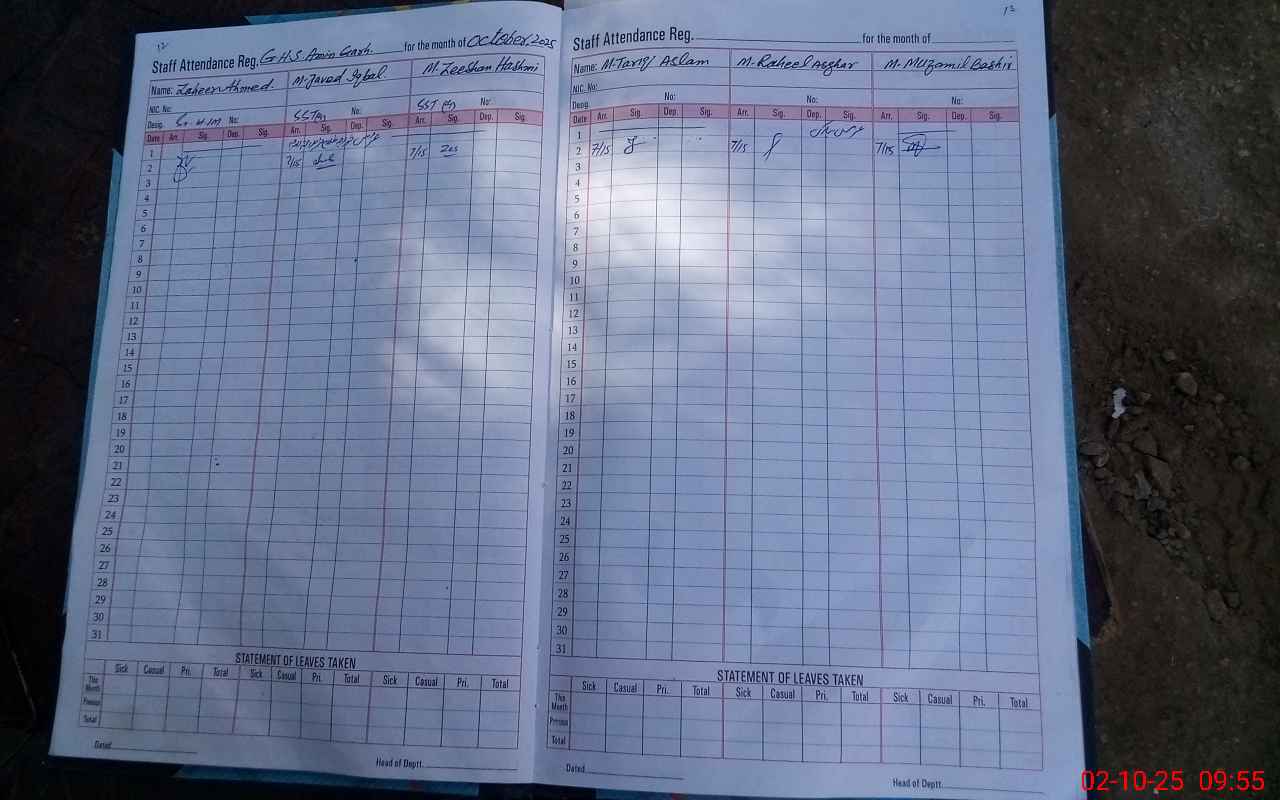 12
Staff Attendance Reg. G.H.S Amin Garh for the month of October, 2025
Name: Zaheer Ahmed. M. Javed Iqbal. M. Zeeshan Hashmi
NIC. No:
Desig. Sr. H.M No: SST No: SST No:
Date Arr. Sig. Dep. Sig. Arr. Sig. Dep. Sig. Arr. Sig. Dep. Sig.
1
2 7/15 7/15
3
4
5
6
7
8
9
10
11
12
13
14
15
16
17
18
19
20
21
22
23
24
25
26
27
28
29
30
31
STATEMENT OF LEAVES TAKEN
Sick Casual Pri. Total Sick Casual Pri. Total Sick Casual Pri. Total
This Month
Previous
Total
Dated
Head of Deptt.
13
Staff Attendance Reg. for the month of
Name: M. Tariq Aslam M. Raheel Asghar M. Muzamil Bashir
NIC. No:
Desig. No: No: No:
Date Arr. Sig. Dep. Sig. Arr. Sig. Dep. Sig. Arr. Sig. Dep. Sig.
1
2 7/15 7/15 7/15
3
4
5
6
7
8
9
10
11
12
13
14
15
16
17
18
19
20
21
22
23
24
25
26
27
28
29
30
31
STATEMENT OF LEAVES TAKEN
Sick Casual Pri. Total Sick Casual Pri. Total Sick Casual Pri. Total
This Month
Previous
Total
Dated
Head of Deptt.
02-10-25 09:55